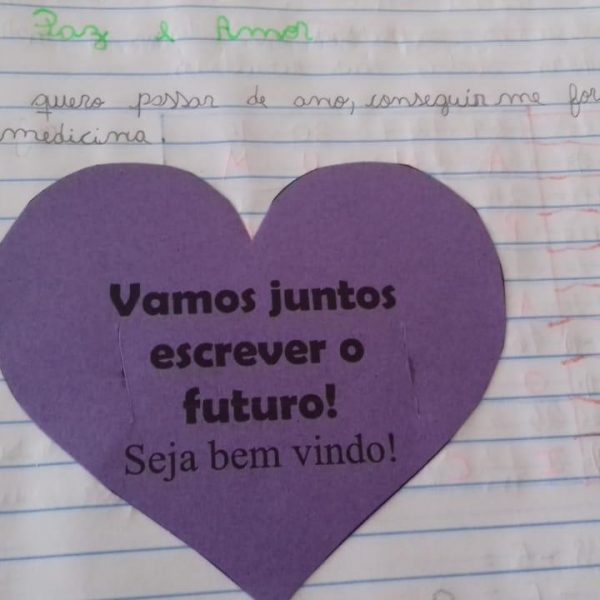 Paz e Amor
quero passar de ano, conseguir me for
medicina.
Vamos juntos
escrever o
futuro!
Seja bem vindo!